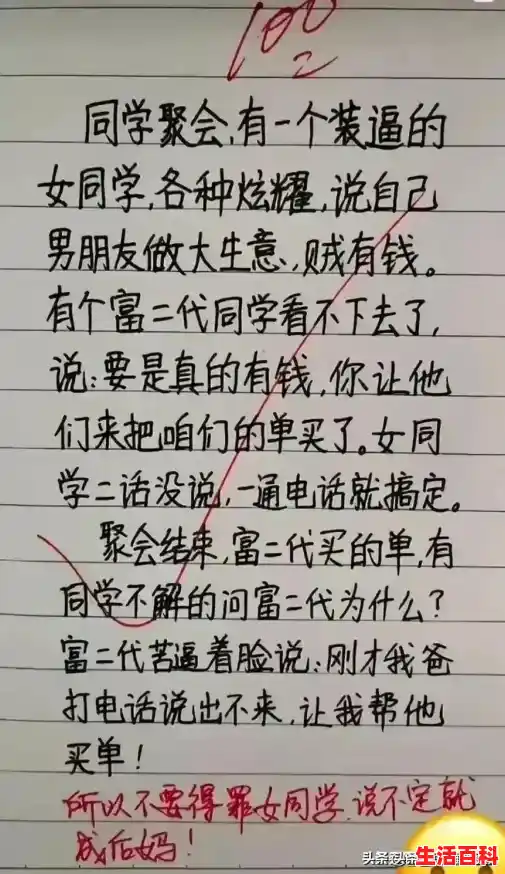 100
同学聚会,有一个装逼的
女同学,各种炫耀,说自己
男朋友做大生意,贼有钱。
有个富二代同学看不下去了,
说:要是真的有钱,你让他
们来把咱们的单买了。女同
学二话没说,一通电话就搞定。
聚会结束,富二代买的单,有
同学不解的问富二代为什么?
富二代苦逼着脸说:刚才我爸
打电话说出不来,让我帮他
买单!
所以不要得罪女同学,说不定就
成后妈!
头条
生活百科